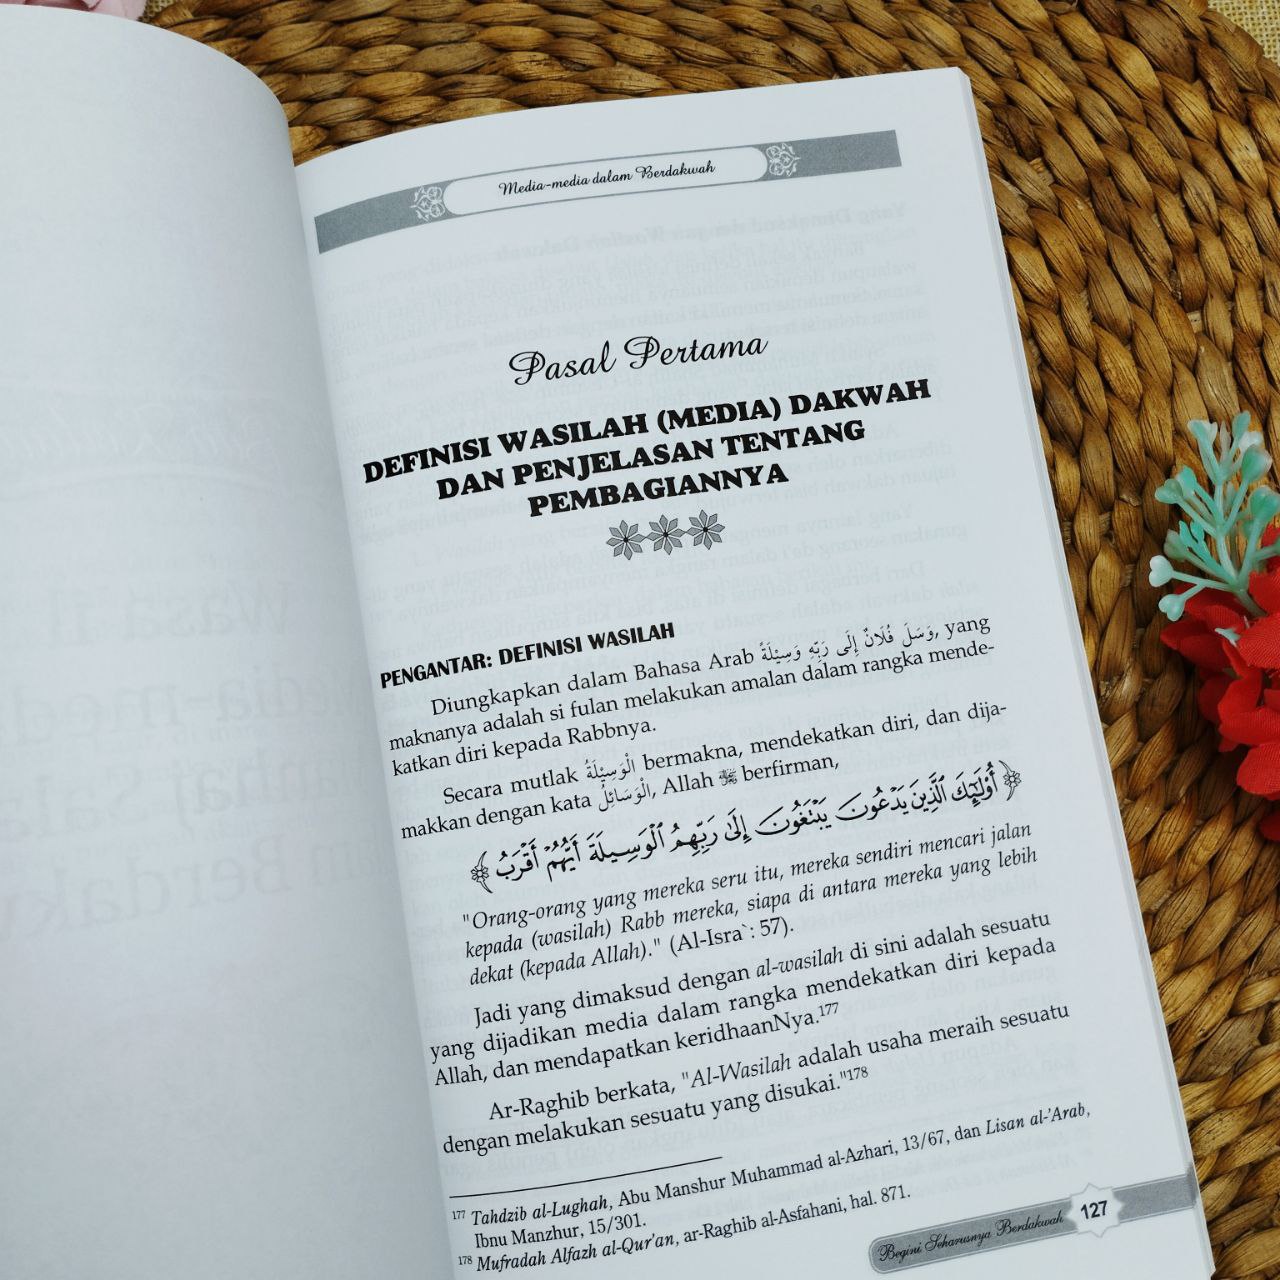 Media-media dalam Berdakwah
Pasal Pertama
DEFINISI WASILAH (MEDIA) DAKWAH
DAN PENJELASAN TENTANG
PEMBAGIANNYA
PENGANTAR: DEFINISI WASILAH
Diungkapkan dalam Bahasa Arab وَسَلَ فُلَانٌ إِلَى رَبِّهِ وَسِيْلَةً, yang
maknanya adalah si fulan melakukan amalan dalam rangka mende-
katkan diri kepada Rabbnya.
Secara mutlak الْوَسِيْلَةُ bermakna, mendekatkan diri, dan dija-
makkan dengan kata الْوَسَائِلُ, Allah ﷻ berfirman,
﴿ أُوْلَٰٓئِكَ ٱلَّذِينَ يَدْعُونَ يَبْتَغُونَ إِلَىٰ رَبِّهِمُ ٱلْوَسِيلَةَ أَيُّهُمْ أَقْرَبُ ﴾
"Orang-orang yang mereka seru itu, mereka sendiri mencari jalan
kepada (wasilah) Rabb mereka, siapa di antara mereka yang lebih
dekat (kepada Allah)." (Al-Isra`: 57).
Jadi yang dimaksud dengan al-wasilah di sini adalah sesuatu
yang dijadikan media dalam rangka mendekatkan diri kepada
Allah, dan mendapatkan keridhaanNya.177
Ar-Raghib berkata, "Al-Wasilah adalah usaha meraih sesuatu
dengan melakukan sesuatu yang disukai."178
177 Tahdzib al-Lughah, Abu Manshur Muhammad al-Azhari, 13/67, dan Lisan al-'Arab,
Ibnu Manzhur, 15/301.
178 Mufradah Alfazh al-Qur'an, ar-Raghib al-Asfahani, hal. 871.
Begini Seharusnya Berdakwah 127